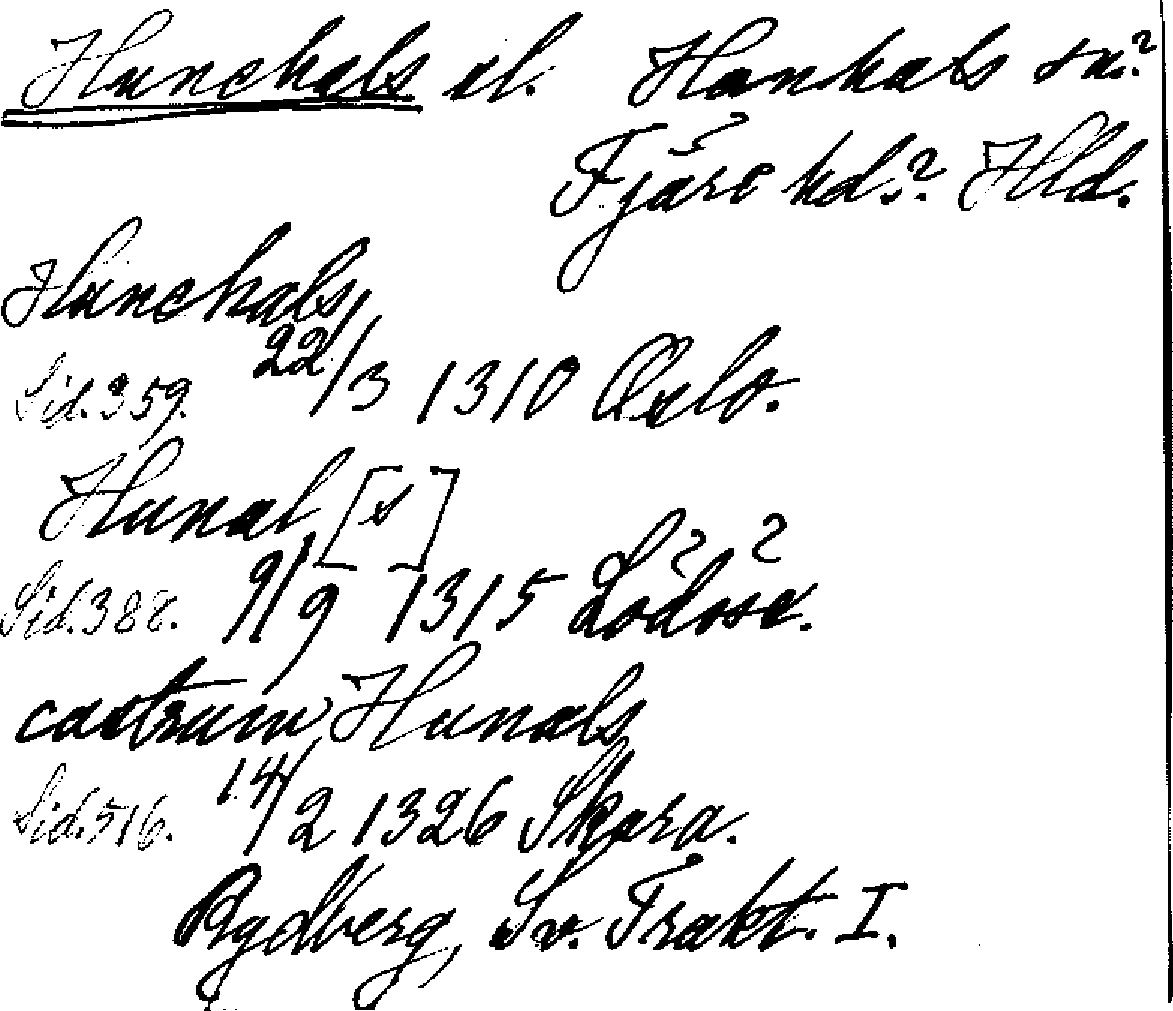 Hunehals el. Hanhals sn?
Fjäre hd.? Hld.
Hunehals,
Sid.359. 22/3 1310 Oslo.
Hunal[s]
Sid.388. 9/9 1315 Lödöse.
castrum Hunals
Sid.516. 14/2 1326 Skara.
Rydberg, Sv. Trakt. I.